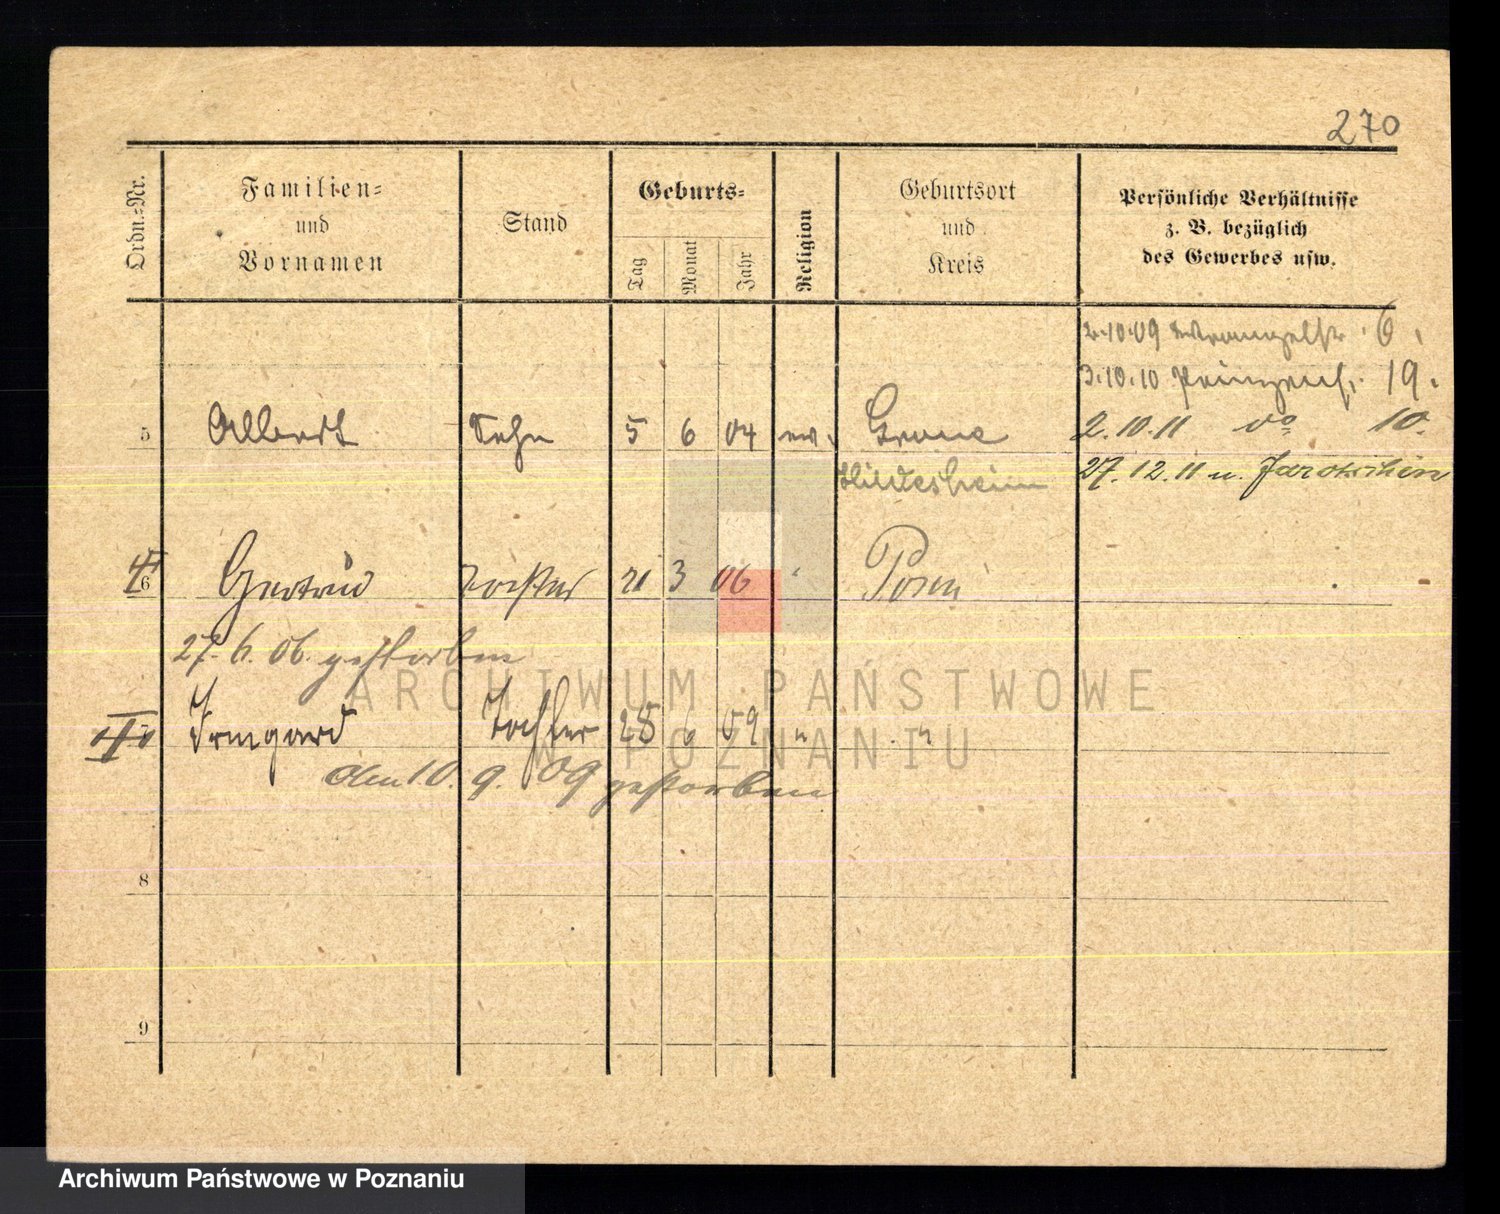 270
Ordn.-Nr.
Familien-
und
Vornamen
Stand
Geburts-
Tag
Monat
Jahr
Religion
Geburtsort
und
Kreis
Persönliche Verhältnisse
z. B. bezüglich
des Gewerbes usw.
2.10.09 Wrangelstr. 6.
3.10.10 19.
5 Albert Sohn 5 6 04 ev. Gronau
2.10.11 do 10.
Hildesheim
27.12.11 n. Jarotschin
6 Gertrud Tochter 21 3 06 " Posen
27. 6. 06. gestorben
Irmgard Tochter 25 6 09 " "
den 10. 9. 09 gestorben
8
9
ARCHIWUM PAŃSTWOWE
W POZNANIU
Archiwum Państwowe w Poznaniu